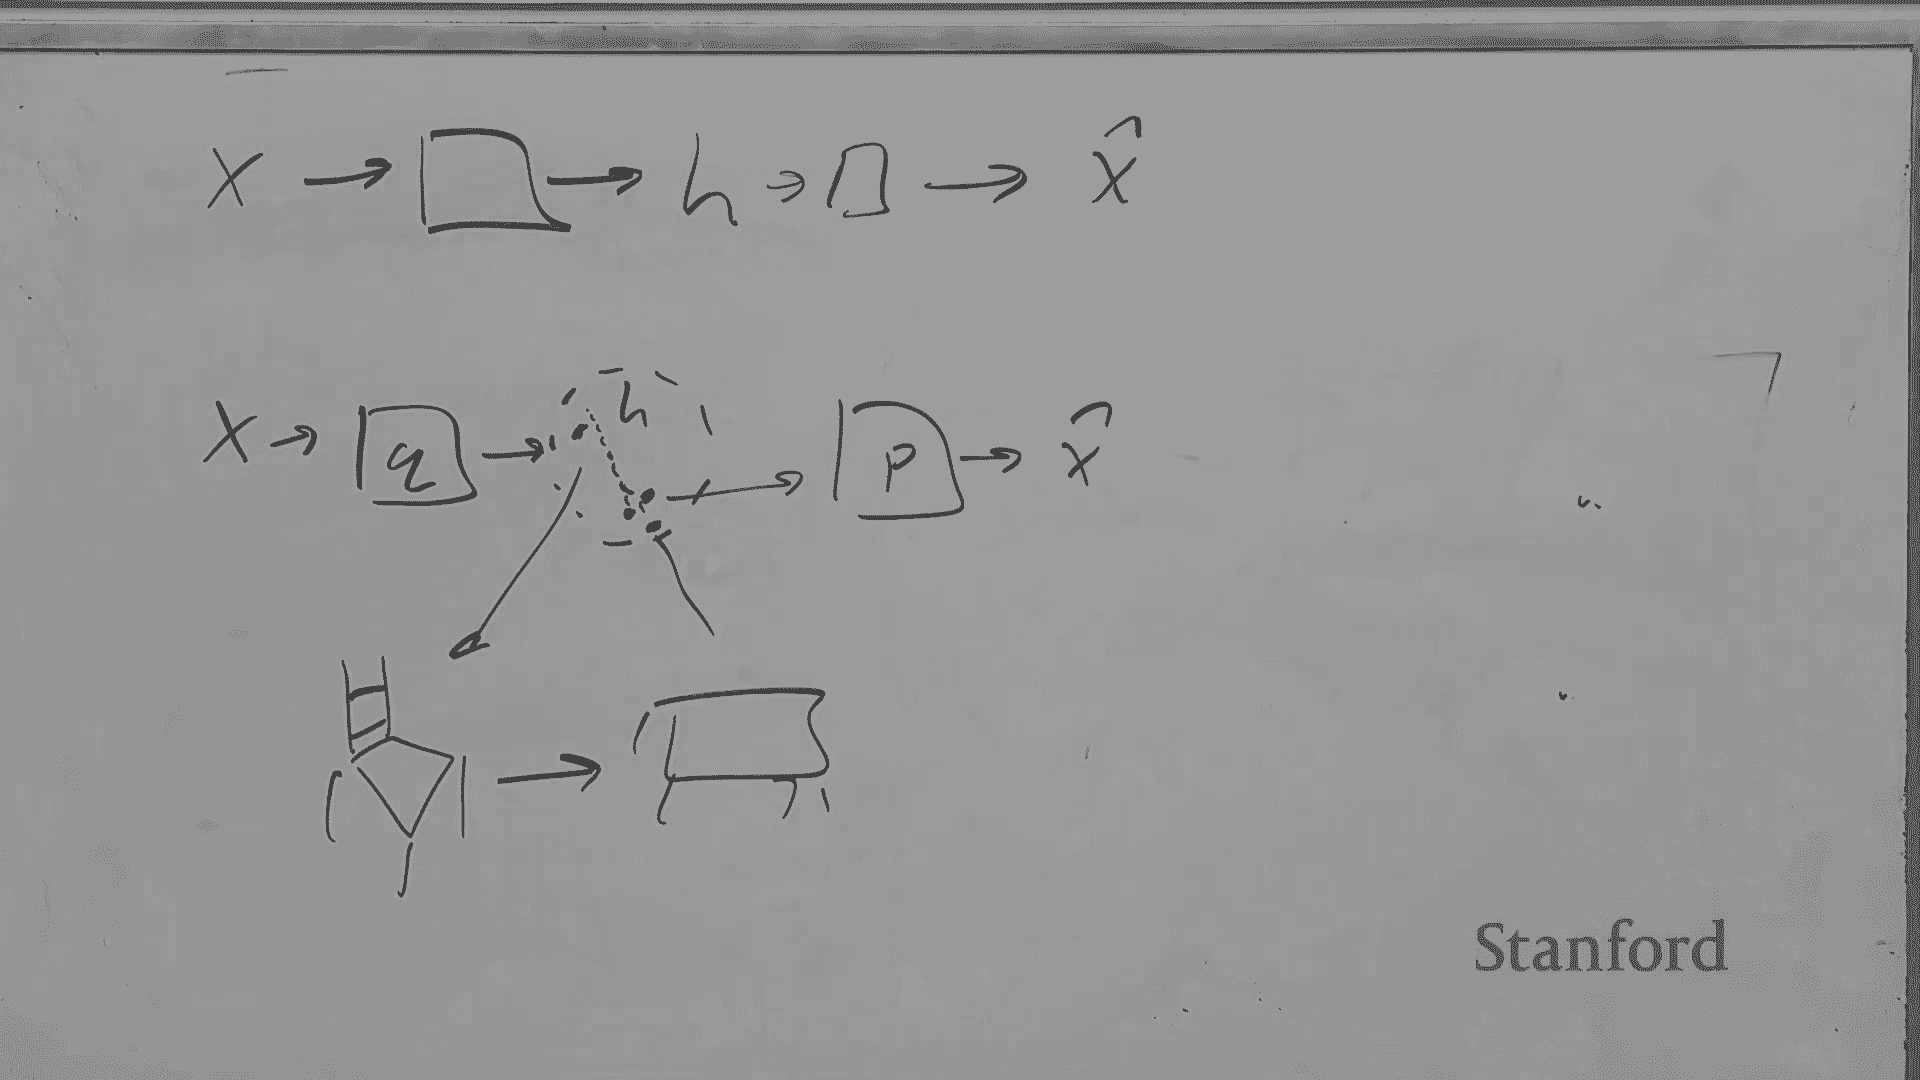 X → → h → → x̂
X → q → h → p → x̂
Stanford